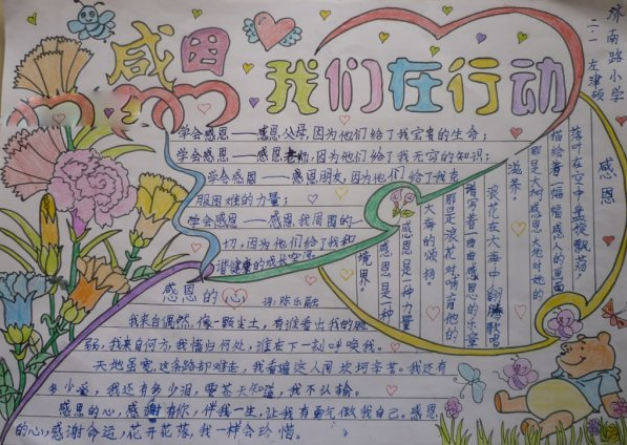 感恩
我们在行动
济南路小学
二.1
学会感恩——感恩父母,因为他们给了我宝贵的生命;
学会感恩——感恩老师,因为他们给了我无穷的知识;
学会感恩——感恩朋友,因为他们给了我克
服困难的力量;
学会感恩——感恩我周围的一
切,因为他们给了我和
谐健康的成长空间
感恩
落叶在空中盘旋飘荡,
描绘着一幅幅感人的画面
那是大树感恩大地对她的
滋养。
浪花在大海中翻腾歌唱
谱写着一曲曲感恩的乐章
那是浪花对哺育他的
大海的颂扬。
感恩是一种力量
感恩是一种
境界。
感恩的心 词:陈乐融
我来自偶然,像一颗尘土,有谁看出我的脆
弱,我来自何方,我情归何处,谁在下一刻呼唤我。
天地虽宽,这条路却难走,我看遍这人间坎坷辛苦。我还有
多少爱,我还有多少泪,要苍天知道,我不认输。
感恩的心,感谢有你,伴我一生,让我有勇气做我自己。感恩
的心,感谢命运,花开花落,我一样会珍惜。